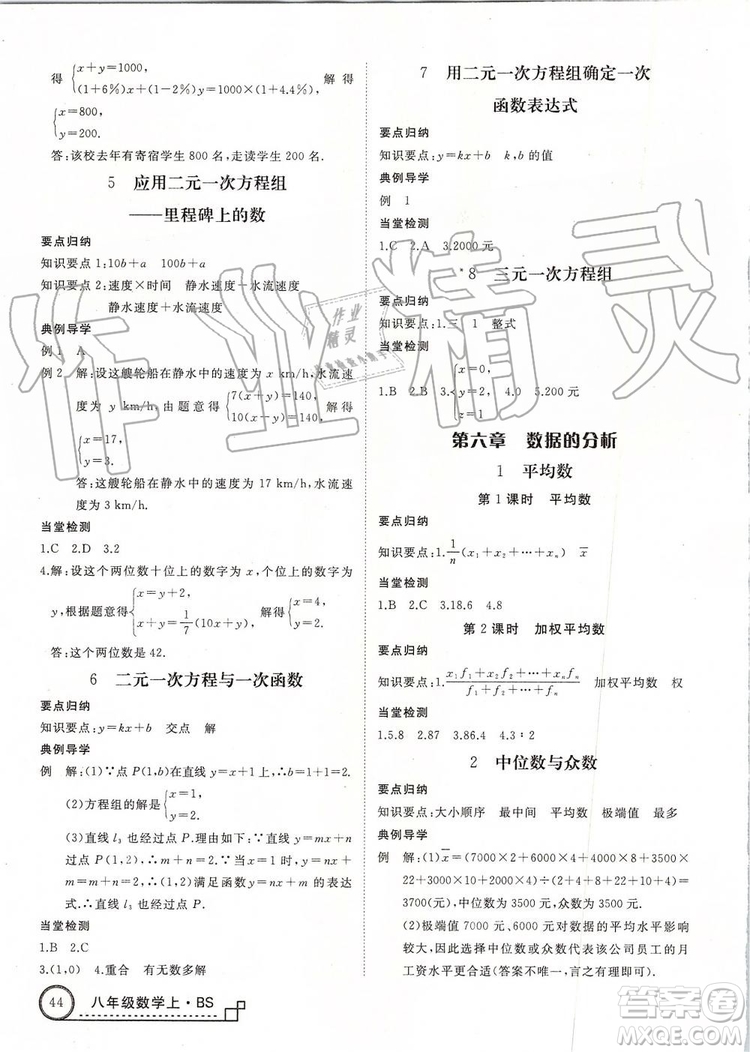 得{x+y=1000, (1+6%)x+(1-2%)y=1000×(1+4.4%). 解得
{x=800, y=200.
答:该校去年有寄宿学生 800 名,走读学生 200 名.
5 应用二元一次方程组
——里程碑上的数
要点归纳
知识要点 1:10b+a 100b+a
知识要点 2:速度×时间 静水速度+水流速度
静水速度-水流速度
典例导学
例 1 A
例 2 解:设这艘轮船在静水中的速度为 x km/h,水流速
度为 y km/h,由题意得{7(x+y)=140, 10(x-y)=140, 解得
{x=17, y=3.
答:这艘轮船在静水中的速度为 17 km/h,水流速度
为 3 km/h.
当堂检测
1.C 2.D 3.2
4.解:设这个两位数十位上的数字为 x,个位上的数字为
y,根据题意得{x=y+2, x+y=1/7(10x+y), 解得{x=4, y=2.
∴这个两位数是 42.
6 二元一次方程与一次函数
要点归纳
知识要点:y=kx+b 交点 解
典例导学
例 解:(1)∵点 P(1,b)在直线 y=x+1 上,∴b=1+1=2.
(2)方程组的解是{x=1, y=2.
(3)直线 l₃ 也经过点 P.理由如下:∵直线 l₂:y=mx+n
经过点 P(1,2),∴m+n=2.∵当 x=1 时,y=nx+m=
m+n=2,∴(1,2)满足函数 y=nx+m 的表达
式,∴直线 l₃ 也经过点 P.
当堂检测
1.B 2.C
3.(1,0) 4.重合 有无数多解
44 八年级数学上·BS
7 用二元一次方程组确定一次
函数表达式
要点归纳
知识要点:y=kx+b k,b 的值
典例导学
例 1
当堂检测
1.C 2.A 3.2000 元
8 三元一次方程组
要点归纳
知识要点:1.三 1 整式
当堂检测
1.B 2.B 3.{x=0, y=2, z=1 4.0 5.200 元
第六章 数据的分析
1 平均数
第 1 课时 平均数
要点归纳
知识要点:1/n(x₁+x₂+…+xₙ) x̄
当堂检测
1.B 2.C 3.18.6 4.8
第 2 课时 加权平均数
要点归纳
知识要点:(x₁f₁+x₂f₂+…+xₙfₙ)/(f₁+f₂+…+fₙ) 加权平均数 权
当堂检测
1.5.8 2.87 3.86.4 4.3∶2
2 中位数与众数
要点归纳
知识要点:大小顺序 最中间 平均数 极端值 最多
典例导学
例 解:(1)x̄=(7000×2+6000×4+4000×8+3500×
22+3000×10+2000×4)÷(2+4+8+22+10+4)=
3700(元),中位数为 3500 元,众数为 3500 元.
(2)极端值 7000 元、6000 元对数据的平均水平影响
较大,因此选择中位数或众数代表该公司员工的月
工资水平更合适(答案不唯一,言之有理即可).
作业精灵
作业
精灵
答案圈
MXQE.COM